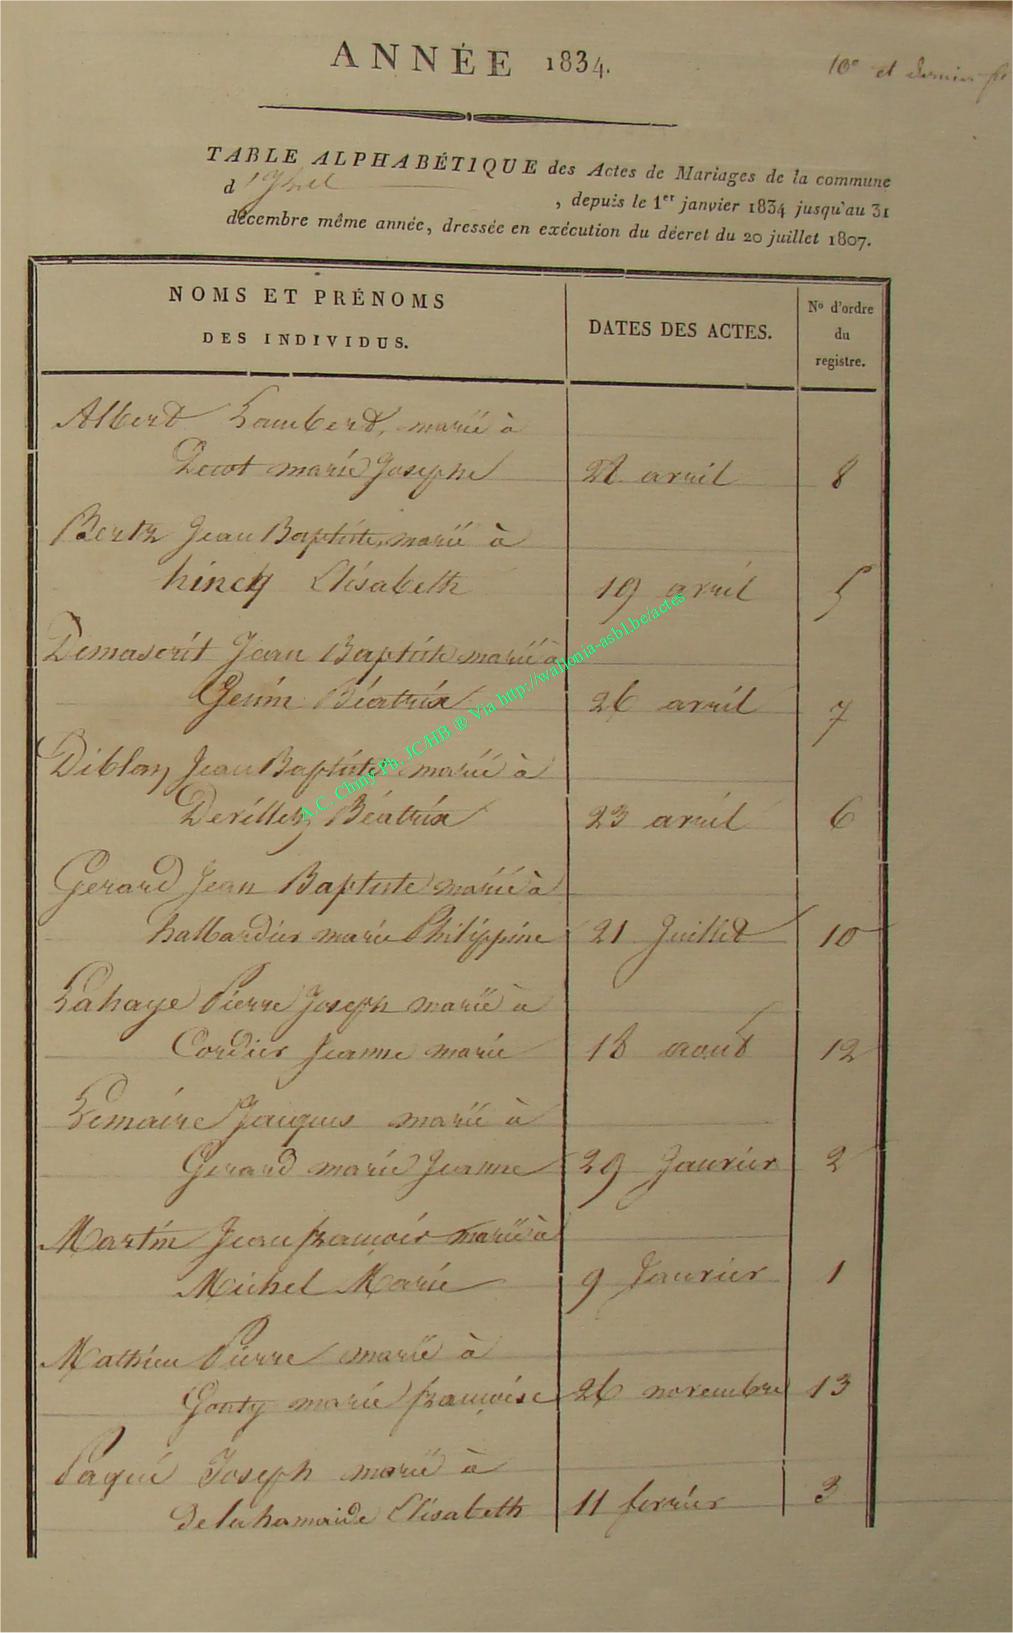 ANNÉE 1834.
10e et dernier
TABLE ALPHABÉTIQUE des Actes de Mariages de la commune
d'Izel, depuis le 1er janvier 1834 jusqu'au 31
décembre même année, dressée en exécution du décret du 20 juillet 1807.
NOMS ET PRÉNOMS DES INDIVIDUS.
DATES DES ACTES.
No d'ordre du registre.
Albert Lambert, marié à
Decot marie Josephe avril 8
Bertz Jean Baptiste marié à
hincq Elisabeth 19 avril 5
Demaserit Jean Baptiste marié à
Genin Béatrix 26 avril 7
Diblon Jean Baptiste marié à
Devillez Béatrix 23 avril 6
Gerard Jean Baptiste marié à
halbardier marie Philippine 21 Juillet 10
Lahaye Pierre Joseph marié à
Cordier Jeanne marie 18 aout 12
Lemaire Jacques marié à
Gerard marie Jeanne 29 Janvier 2
Martin Jean françois marié à
Michel Marie 9 Janvier 1
Mathieu Pierre marié à
Gonty marie françoise 26 novembre 13
Paqué Joseph marié à
Delahamaide Elisabeth 11 fevrier 3
A.C. Chiny Ph. JC/HB ® Via http://wallonia-asbl.be/actes